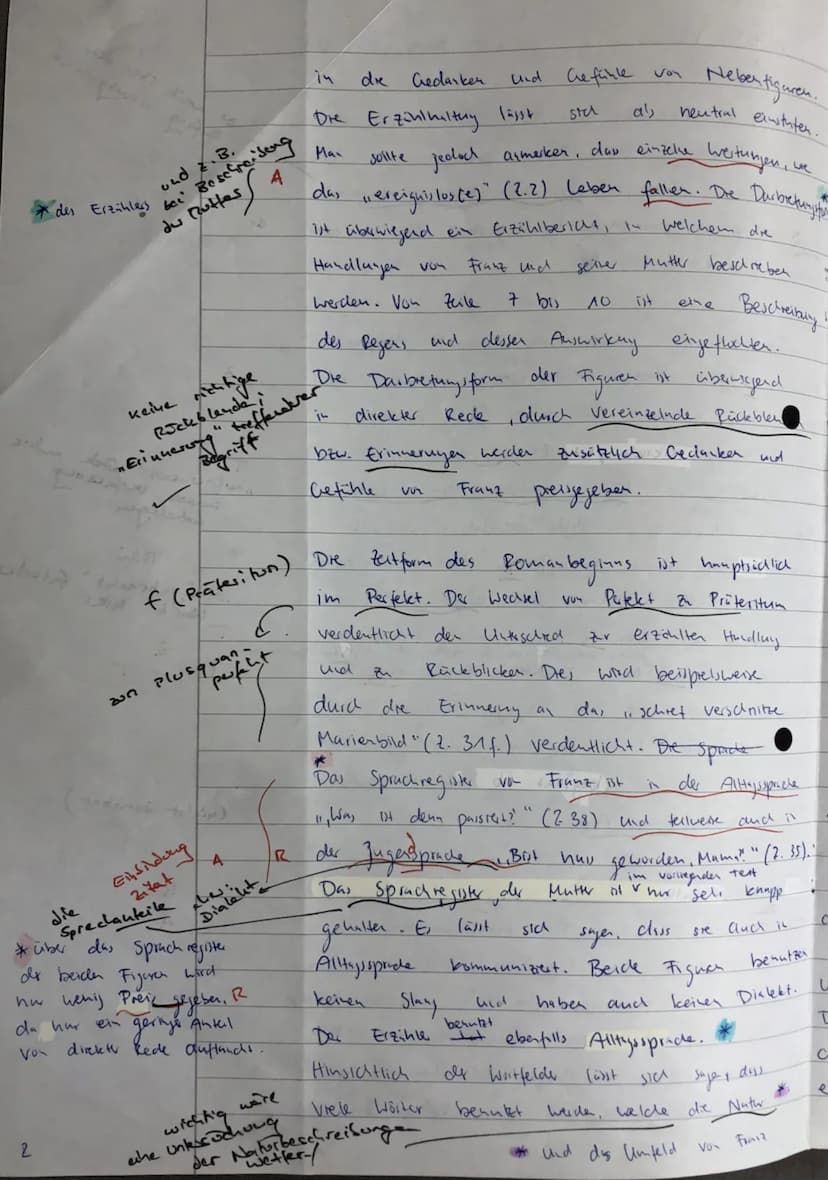 in die Gedanken und Gefühle von Nebenfiguren.
Die Erzählhaltung lässt sich als neutral einstufen.
und z.B.
bei Beschreibung
der Mutter
A
Man sollte jedoch anmerken, dass einzelne Wertungen, wie
* des Erzählers
das „ereignislos(e)" (Z.2) Leben fallen. Die Darbietungsform
ist überwiegend ein Erzählbericht, in welchem die
Handlungen von Franz und seiner Mutter beschrieben
werden. Von Zeile 7 bis 10 ist eine Beschreibung
des Regens und dessen Auswirkung eingeflochten.
Die Darbietungsform der Figuren ist überwiegend
keine richtige
Rückblende;
„Erinnerung" treffenderer
Begriff
in direkter Rede, durch vereinzelnde Rückblen
bzw. Erinnerungen werden zusätzlich Gedanken und
Gefühle von Franz preisgegeben.
Die Zeitform des Romanbeginns ist hauptsächlich
f (Präteritum)
im Perfekt. Der Wechsel von Perfekt zu Präteritum
verdeutlicht den Unterschied zur erzählten Handlung
zum Plusquam-
perfekt
und zu Rückblicken. Dies wird beispielsweise
durch die Erinnerung an das „schief verschnitzte
Marienbild" (Z. 31f.) verdeutlicht. Die Sprache
*
Das Sprachregister von Franz ist in der Alltagssprache
„Was ist denn passiert?" (Z 38) und teilweise auch in
Einbindung
Zitat
A
R
der Jugendsprache „Bist nass geworden, Mama?" (Z. 35).
im vorliegenden Text
Das Sprachregister der Mutter ist nur sehr knapp
die
Sprechanteile
Dialekt
gehalten. Es lässt sich sagen, dass sie auch in
Alltagssprache kommuniziert. Beide Figuren benutzen
keinen Slang und haben auch keinen Dialekt.
* über das Sprachregister
der beiden Figuren wird
nur wenig Preis gegeben, R
da nur ein geringer Anteil
von direkter Rede auftaucht.
benutzt
Der Erzähler ebenfalls Alltagssprache. *
Hinsichtlich der Wortfelder lässt sich sagen, dass
viele Wörter benutzt werden, welche die Natur *
wichtig wäre
eine Untersuchung
der Naturbeschreibung
Wetter-/
* und das Umfeld von Franz
2